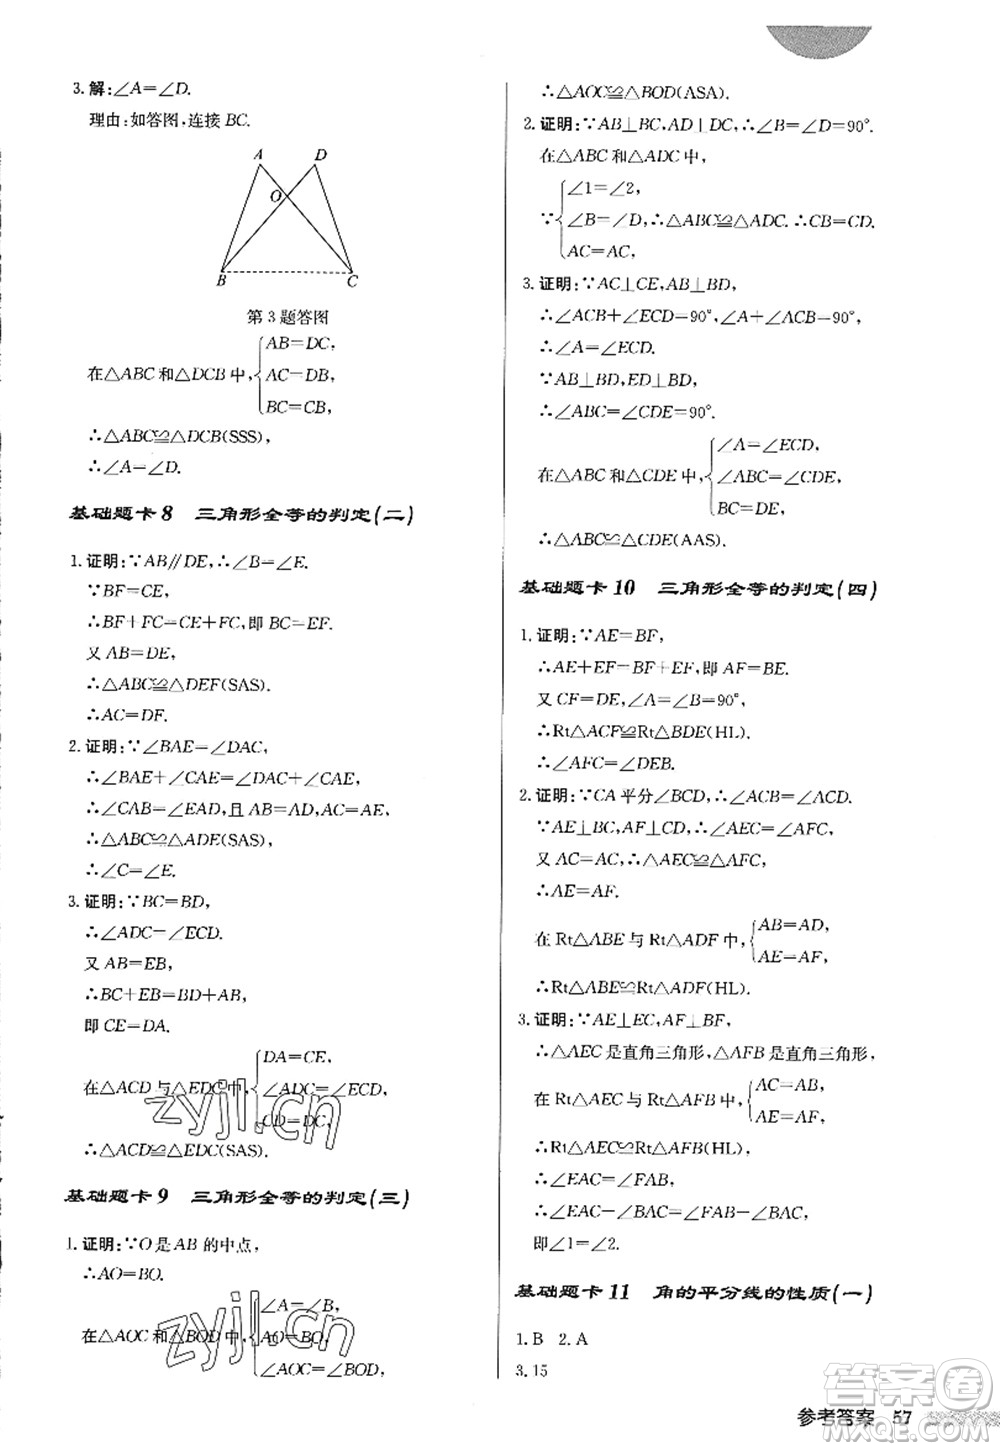 3. 解:∠A=∠D.
理由:如答图,连接 BC.
A D
O
B C
第 3 题答图
在△ABC 和△DCB 中,
AB=DC,
AC=DB,
BC=CB,
∴△ABC≌△DCB(SSS),
∴∠A=∠D.
基础题卡 8 三角形全等的判定(二)
1. 证明:∵AB∥DE,∴∠B=∠E.
∵BF=CE,
∴BF+FC=CE+FC,即 BC=EF.
又 AB=DE,
∴△ABC≌△DEF(SAS).
∴AC=DF.
2. 证明:∵∠BAE=∠DAC,
∴∠BAE+∠CAE=∠DAC+∠CAE,
∴∠CAB=∠EAD,且 AB=AD,AC=AE,
∴△ABC≌△ADE(SAS)
∴∠C=∠E.
3. 证明:∵BC=BD,
∴∠ADC=∠ECD.
又 AB=EB,
∴BC+EB=BD+AB,
即 CE=DA.
在△ACD 与△EDC 中,
DA=CE,
∠ADC=∠ECD,
CD=DC,
∴△ACD≌△EDC(SAS).
基础题卡 9 三角形全等的判定(三)
1. 证明:∵O 是 AB 的中点,
∴AO=BO.
在△AOC 和△BOD 中,
∠A=∠B,
AO=BO,
∠AOC=∠BOD,
∴△AOC≌△BOD(ASA).
2. 证明:∵AB⊥BC,AD⊥DC,∴∠B=∠D=90°.
在△ABC 和△ADC 中,
∵
∠1=∠2,
∠B=∠D,∴△ABC≌△ADC.∴CB=CD.
AC=AC,
3. 证明:∵AC⊥CE,AB⊥BD,
∴∠ACB+∠ECD=90°,∠A+∠ACB=90°,
∴∠A=∠ECD.
∵AB⊥BD,ED⊥BD,
∴∠ABC=∠CDE=90°.
在△ABC 和△CDE 中,
∠A=∠ECD,
∠ABC=∠CDE,
BC=DE,
∴△ABC≌△CDE(AAS).
基础题卡 10 三角形全等的判定(四)
1. 证明:∵AE=BF,
∴AE+EF=BF+EF,即 AF=BE.
又 CF=DE,∠A=∠B=90°,
∴Rt△ACF≌Rt△BDE(HL).
∴∠AFC=∠DEB.
2. 证明:∵CA 平分∠BCD,∴∠ACB=∠ACD.
∵AE⊥BC,AF⊥CD,∴∠AEC=∠AFC,
又 AC=AC,∴△AEC≌△AFC,
∴AE=AF.
在 Rt△ABE 与 Rt△ADF 中,
AB=AD,
AE=AF,
∴Rt△ABE≌Rt△ADF(HL).
3. 证明:∵AE⊥EC,AF⊥BF,
∴△AEC 是直角三角形,△AFB 是直角三角形,
在 Rt△AEC 与 Rt△AFB 中,
AC=AB,
AE=AF,
∴Rt△AEC≌Rt△AFB(HL),
∴∠EAC=∠FAB,
∴∠EAC-∠BAC=∠FAB-∠BAC,
即∠1=∠2.
基础题卡 11 角的平分线的性质(一)
1. B 2. A
3. 15
参考答案 57
zyjl.cn
zyjl.cn
答案圈
MXQE.COM